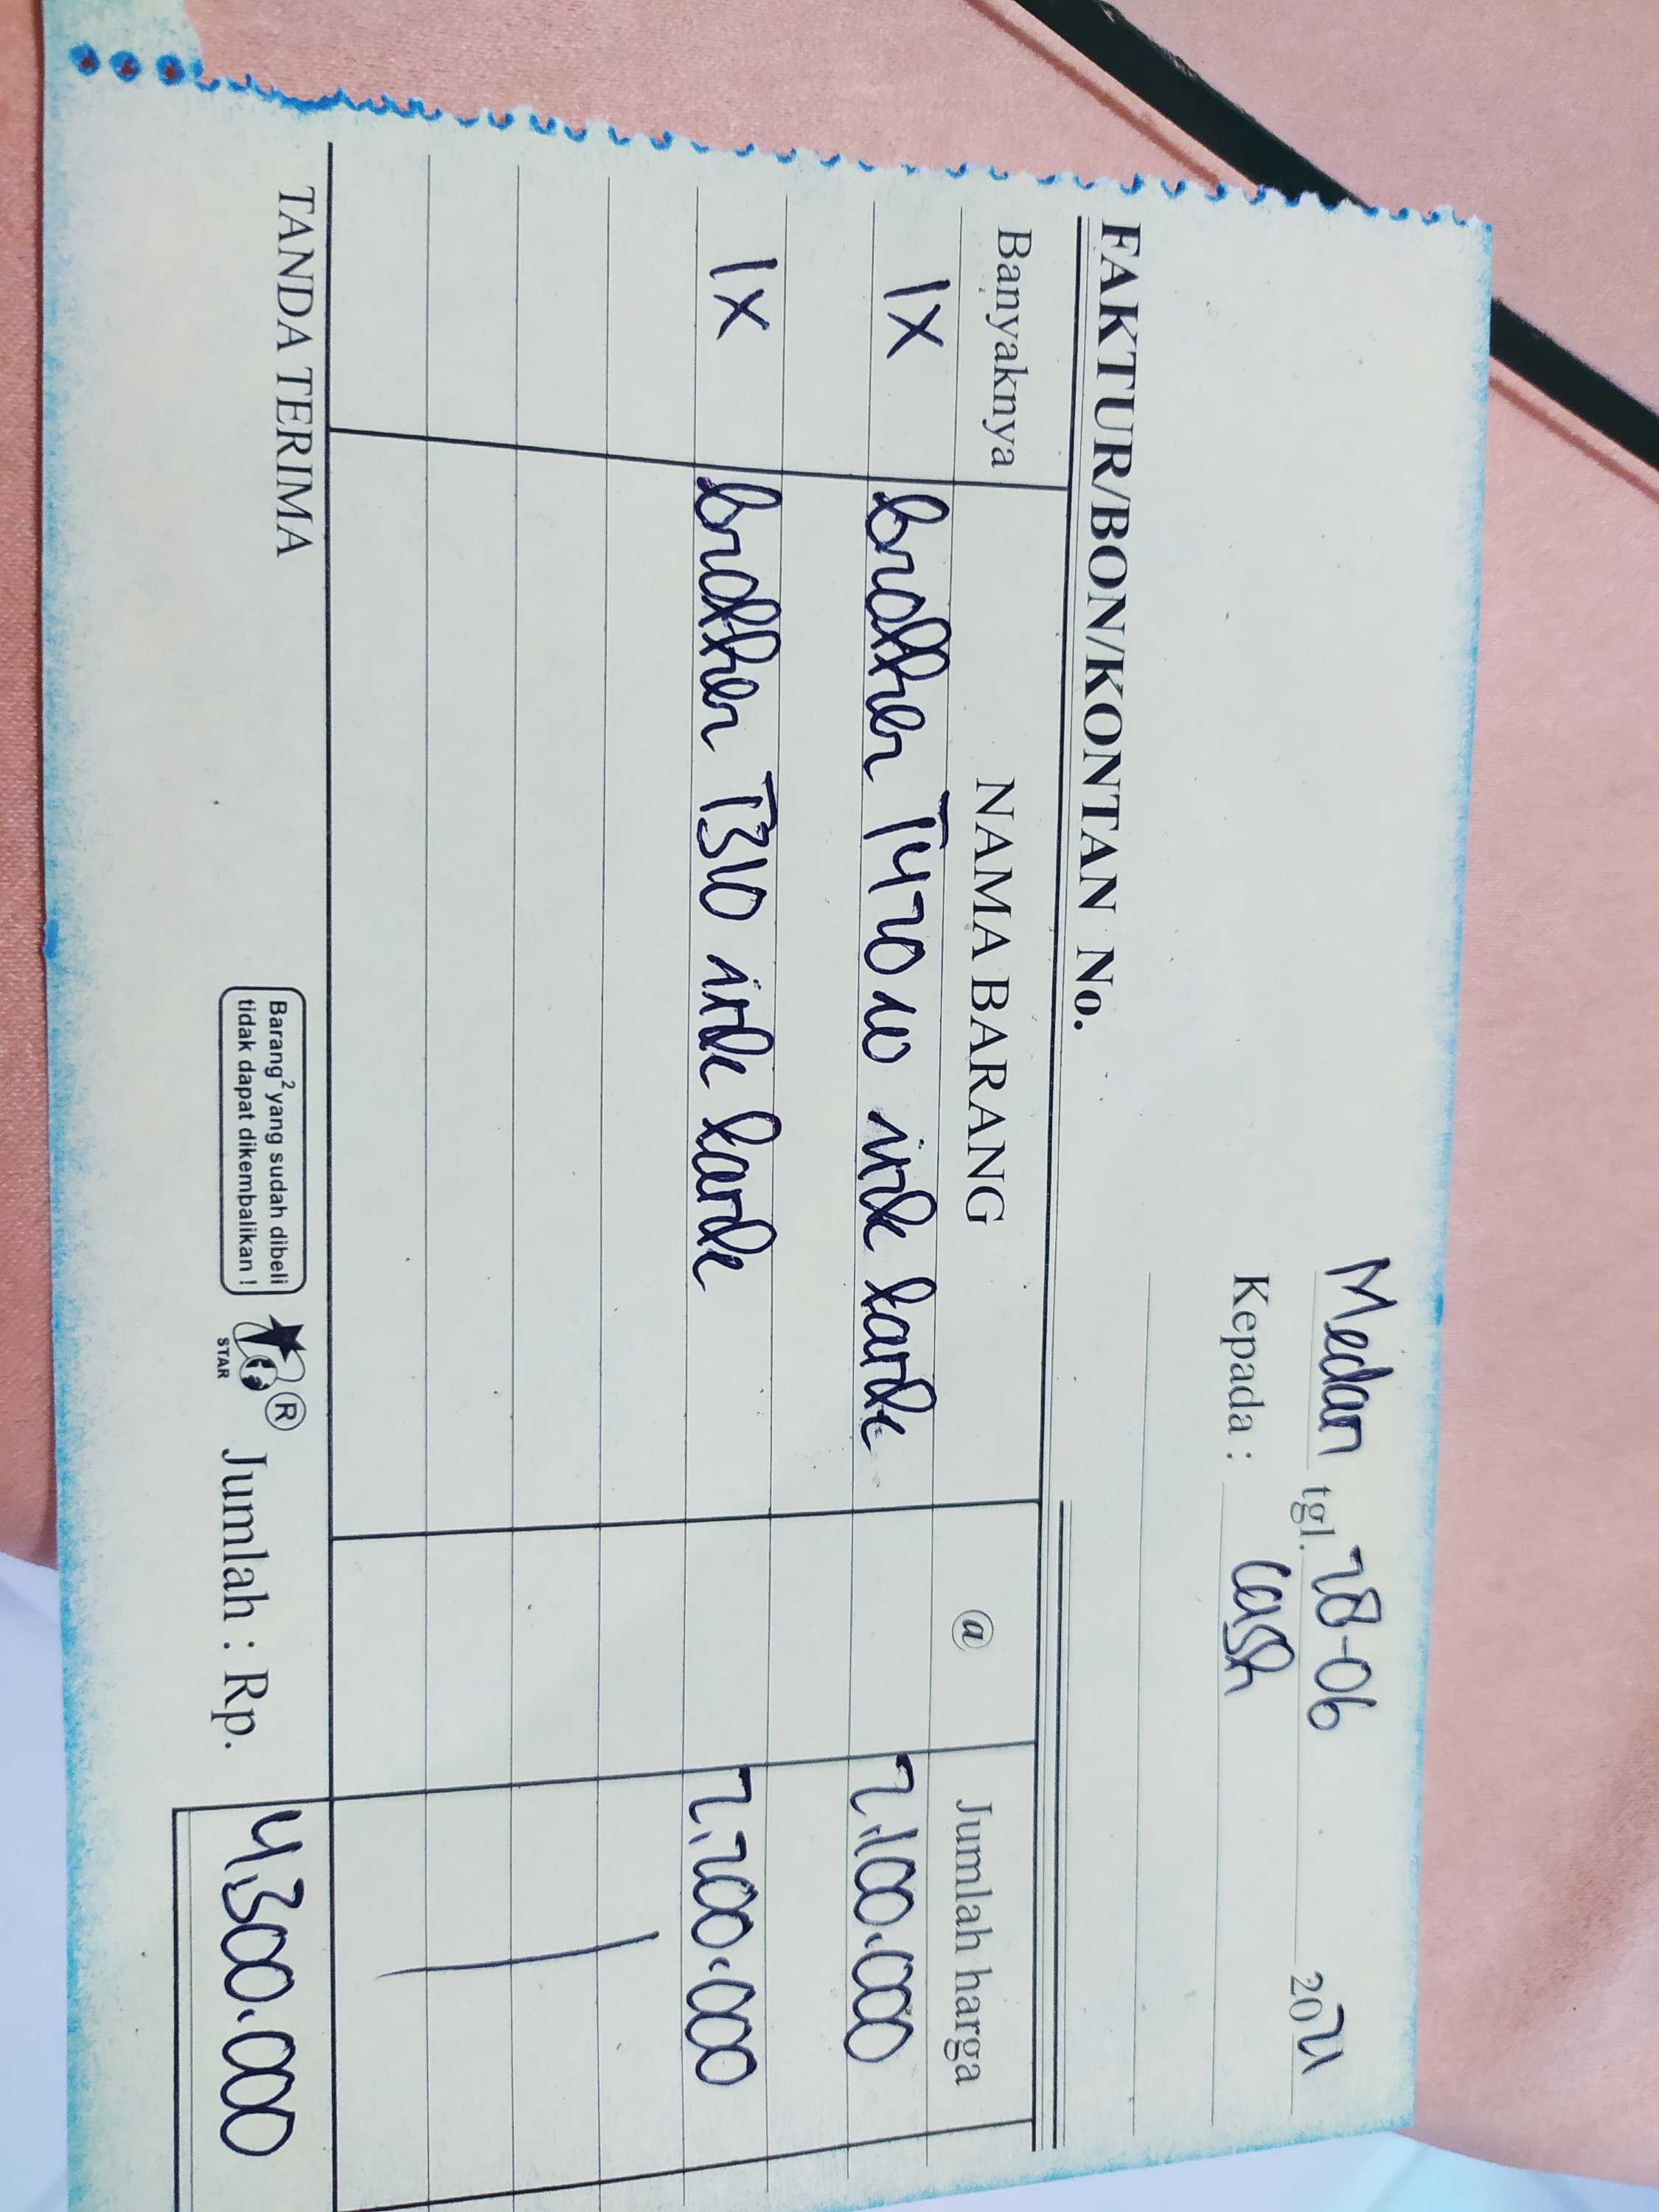 Medan tgl. 28-06 2021
Kepada : Cash
FAKTUR/BON/KONTAN No.
Banyaknya NAMA BARANG @ Jumlah harga
1x brother T420 w ink tank 2.100.000
1x brother T310 ink tank 2.200.000
TANDA TERIMA
Barang² yang sudah dibeli
tidak dapat dikembalikan !
STAR
®
Jumlah : Rp. 4.300.000